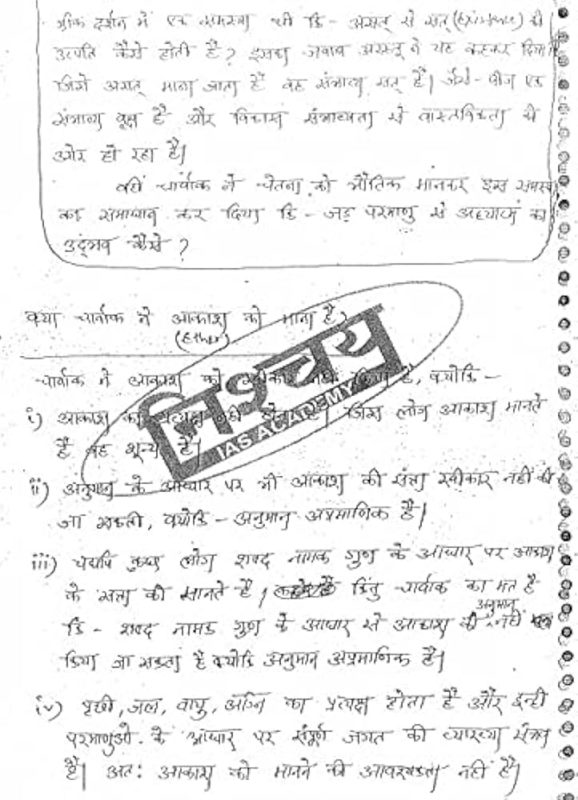 ग्रीक दर्शन में एक समस्या थी कि - असत् से सत् (Existence) की
उत्पत्ति कैसे होती है? इसका जवाब अरस्तू ने यह कहकर दिया
जिसे असत् माना जाता है वह संभाव्य सत् है। जैसे - बीज एक
संभाव्य वृक्ष है और विकास संभाव्यता से वास्तविकता की
ओर हो रहा है।
वहीं चार्वाक ने चेतना को भौतिक मानकर इस समस्या
का समाधान कर दिया कि - जड़ परमाणु से अध्यात्म का
उद्भव कैसे?
क्या चार्वाक ने आकाश को माना है?
(Ether)
चार्वाक ने आकाश को स्वीकार नहीं किया है, क्योंकि -
निश्चय
IAS ACADEMY
i) आकाश का प्रत्यक्ष नहीं होता है। जिसे लोग आकाश मानते
हैं वह शून्य है।
ii) अनुमान के आधार पर भी आकाश की सत्ता स्वीकार नहीं की
जा सकती, क्योंकि - अनुमान अप्रमाणिक है।
iii) यद्यपि कुछ लोग शब्द नामक गुण के आधार पर आकाश
के सत्ता को मानते हैं, किंतु चार्वाक का मत है
कि - शब्द नामक गुण के आधार से आकाश की अनुमान नहीं
किया जा सकता है क्योंकि अनुमान अप्रमाणिक है।
iv) पृथ्वी, जल, वायु, अग्नि का प्रत्यक्ष होता है और इन्हीं
परमाणुओं के आधार पर संपूर्ण जगत की व्याख्या संभव
है। अतः आकाश को मानने की आवश्यकता नहीं है।